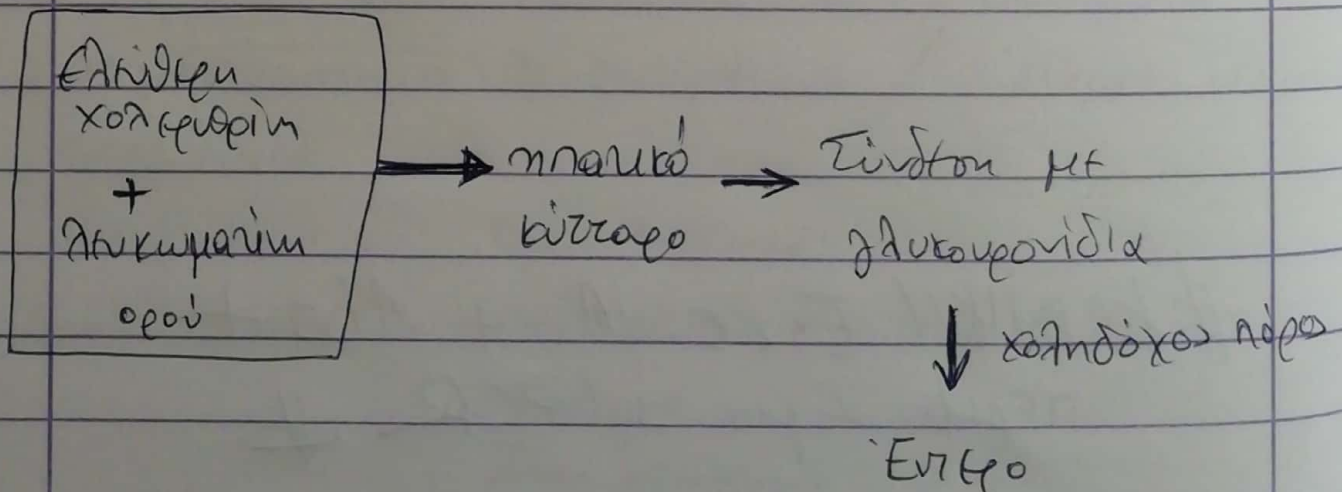 Ελεύθερη
χολερυθρίνη
+
λευκωματίνη
ορού
ηπατικό
κύτταρο
Σύνδεση με
γλυκουρονίδια
χοληδόχος πόρος
Έντερο